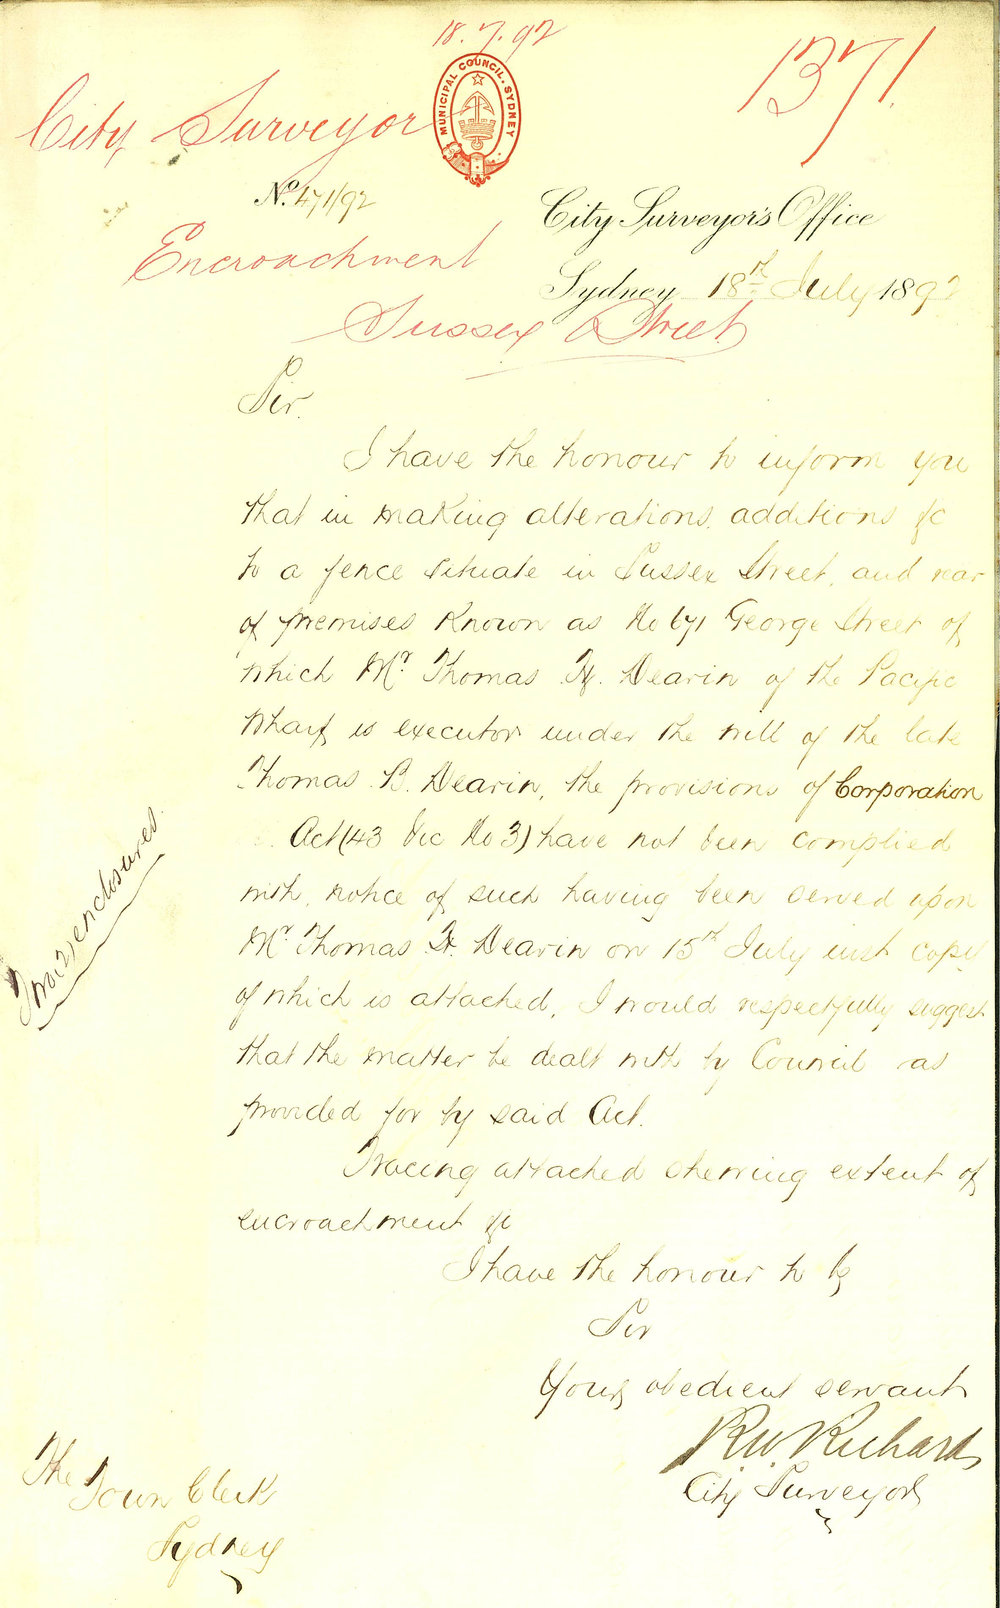 18.7.92
1371.
City Surveyor
MUNICIPAL COUNCIL. SYDNEY
No. 471/92
City Surveyor's Office
Encroachment
Sydney 18th July 1892
Sussex Street
Sir.
I have the honour to inform you
that in making alterations, additions &c
to a fence situate in Sussex Street, and rear
of premises known as No 671 George Street of
which Mr. Thomas H. Dearin of the Pacific
Wharf is executor under the will of the late
Thomas B. Dearin, the provisions of Corporation
Act (43 Vic No 3) have not been complied
with, notice of such having been served upon
Mr. Thomas H. Dearin on 15th July inst copy
of which is attached, I would respectfully suggest
that the matter be dealt with by Council as
provided for by said Act.
Tracing attached shewing extent of
encroachment &c
I have the honour to be
Sir
Your obedient servant
R.W. Richards
City Surveyor
The
Town Clerk
Sydney
enclosures.